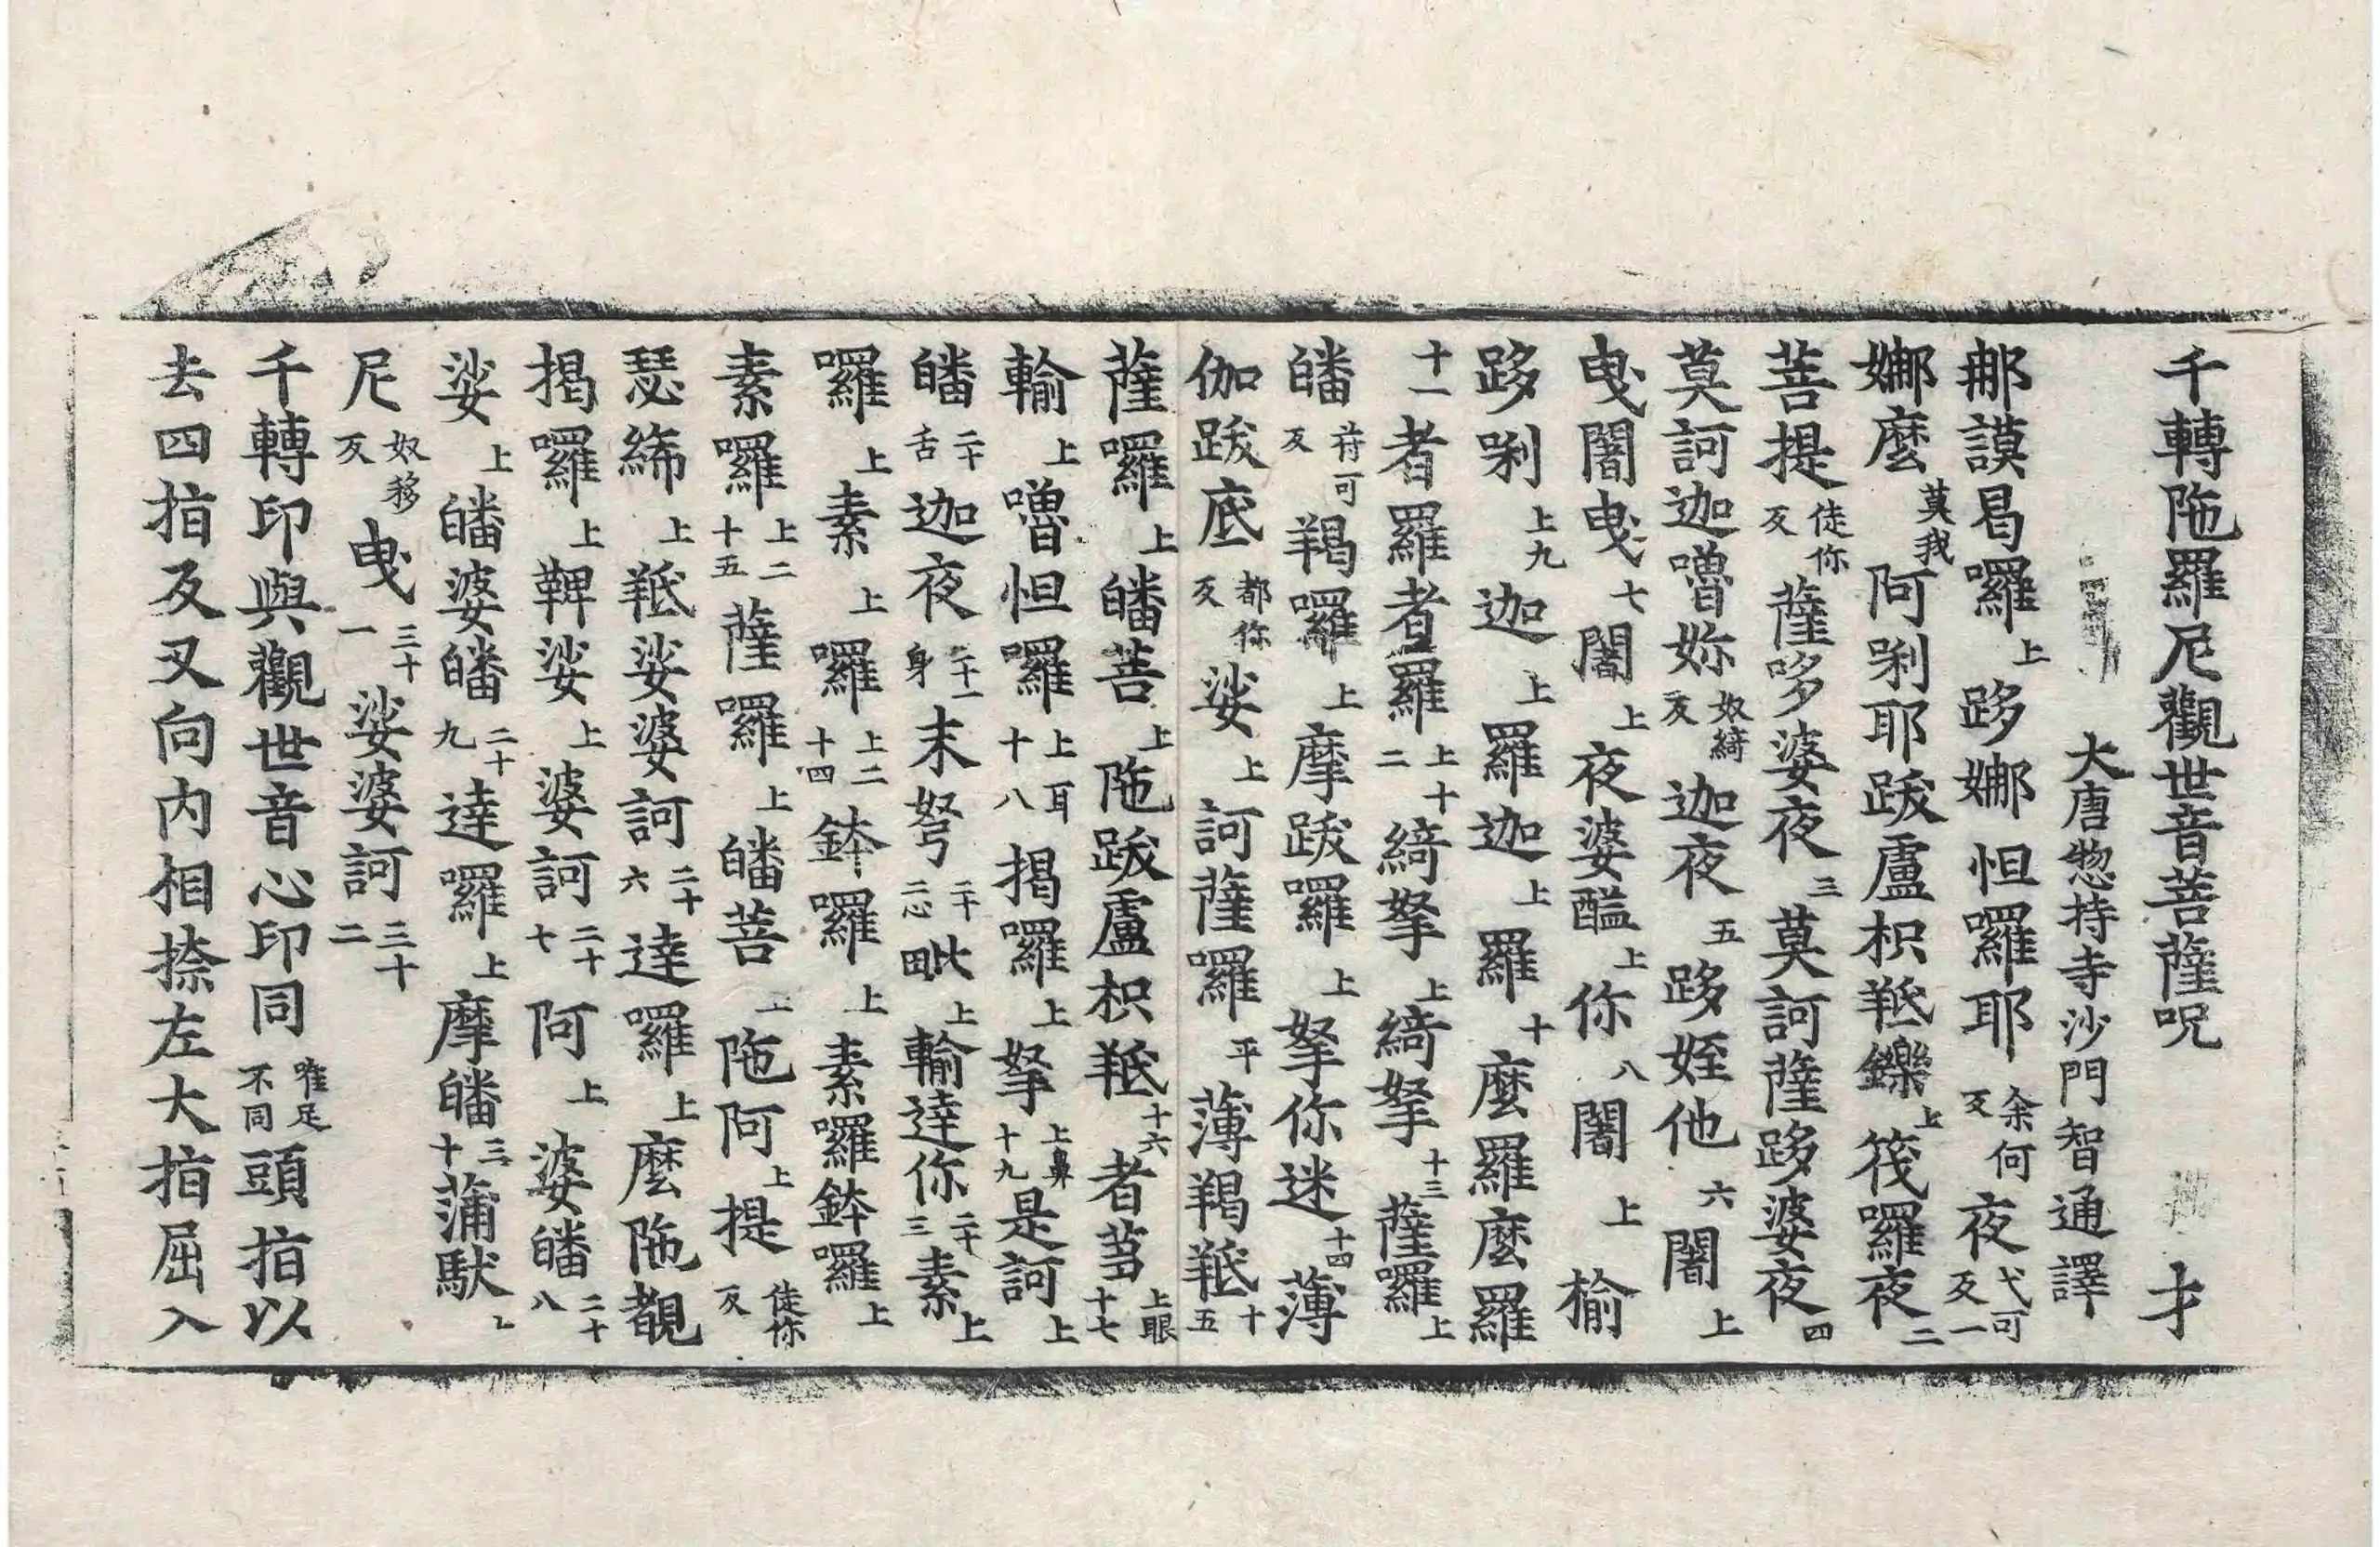 千轉陁羅尼觀世音菩薩呪 才
大唐惣持寺沙門智通譯
那謨曷囉上跢娜怛囉耶余何反夜弋可反一
娜麼莫我阿唎耶跋盧枳羝鑠上筏囉夜二
菩提徒你反薩哆婆夜三莫訶薩跢婆夜四
莫訶迦嚕妳奴綺反迦夜五跢姪他六闇上
曳闇曳七闇上夜婆醯上你八闇上榆
跢唎上九迦上羅迦上羅十麼羅麼羅
十一者羅者羅上十二綺拏上綺拏十三薩囉上
皤苻可反羯囉上摩跋囉上拏你迷十四薄
伽跋底都你反娑上訶薩囉平薄羯羝十五
薩囉上皤菩上陁跋盧枳羝十六者芻上眼十七
輸上嚕怛囉上耳十八揭囉上拏上鼻十九是訶上
皤二十舌迦夜二十一身末弩二十二心毗上輸達你二十三素上
囉上素上囉上二十四鉢囉上素囉鉢囉上
素囉上二十五薩囉上皤菩上陁阿上提徒你反
瑟絺上羝娑婆訶二十六達囉上麼陁覩
揭囉上鞞娑上婆訶二十七阿上婆皤二十八
娑上皤婆皤二十九達囉上摩皤三十蒲馱上
尼奴移反曳三十一娑婆訶三十二
千轉印與觀世音心印同唯足不同頭指以
去四指反叉向内相捺左大指屈入